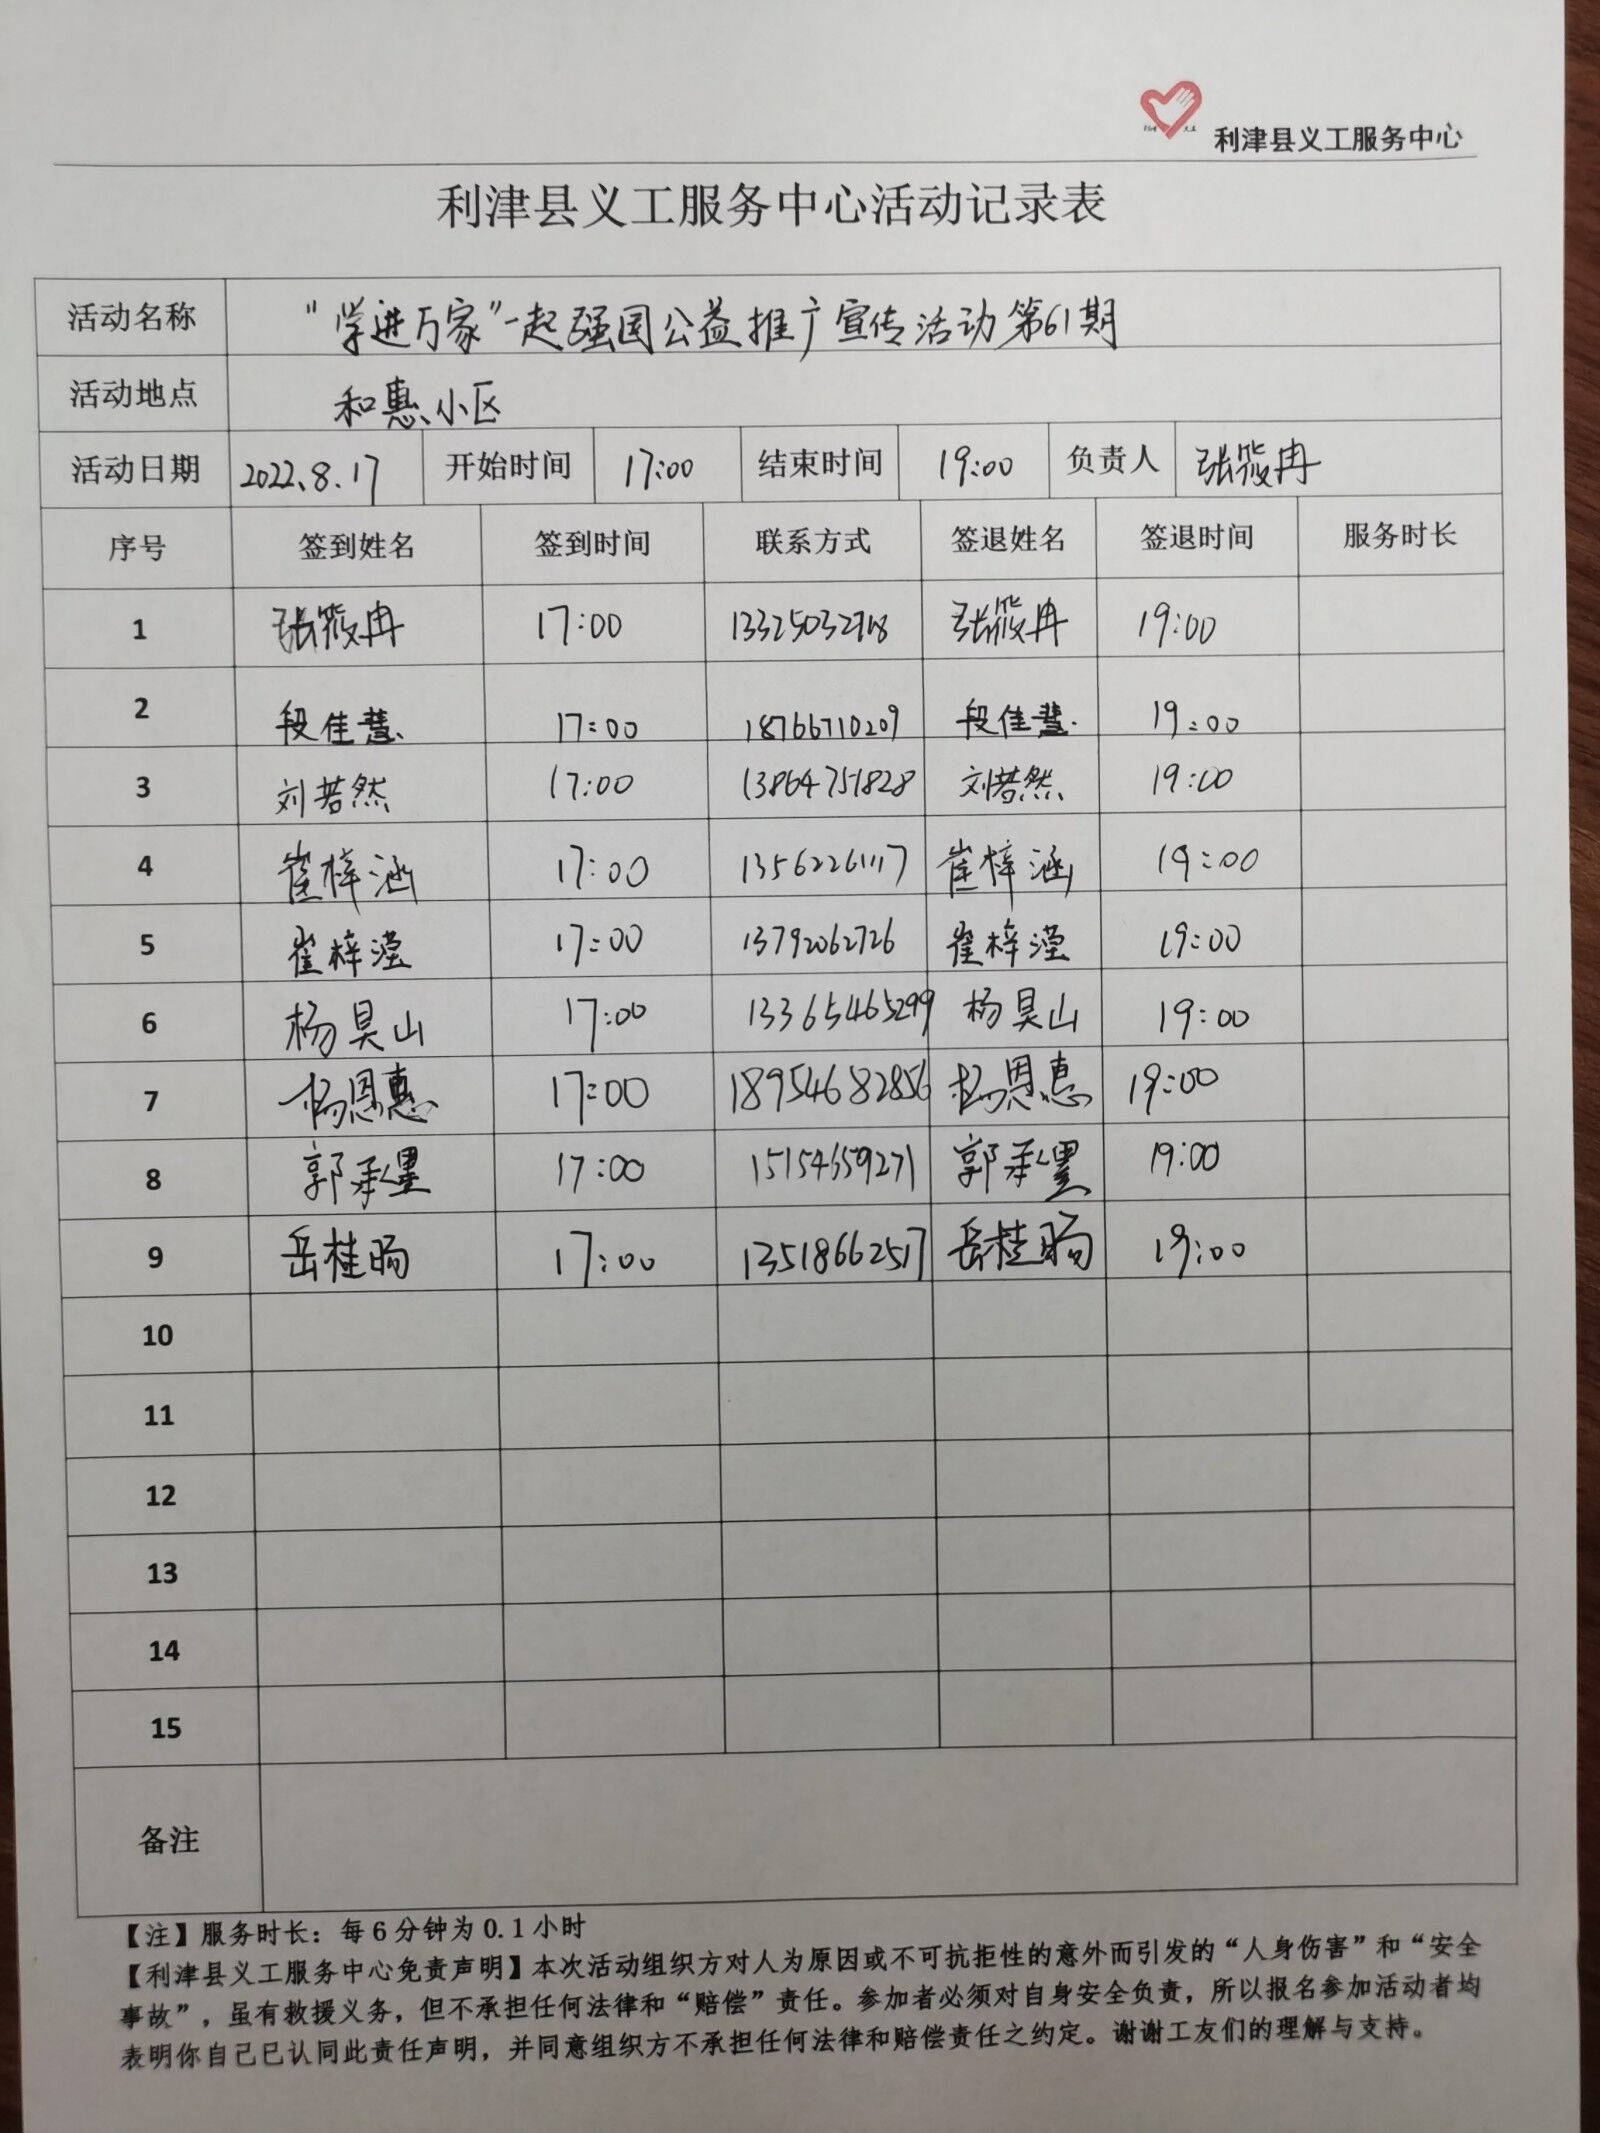 利津县义工服务中心
利津县义工服务中心活动记录表
活动名称 “学进万家”一起强国公益推广宣传活动第61期
活动地点 和惠小区
活动日期 2022.8.17 开始时间 17:00 结束时间 19:00 负责人 张筱冉
序号 签到姓名 签到时间 联系方式 签退姓名 签退时间 服务时长
1 张筱冉 17:00 张筱冉 19:00
2 段佳慧 17:00 18766710209 段佳慧 19:00
3 刘若然 17:00 13864751828 刘若然 19:00
4 崔梓涵 17:00 13562261117 崔梓涵 19:00
5 崔梓滢 17:00 13792062726 崔梓滢 19:00
6 杨昊山 17:00 13365465299 杨昊山 19:00
7 杨恩惠 17:00 18954682856 杨恩惠 19:00
8 郭承 17:00 15154659271 郭承 19:00
9 岳桂旸 17:00 13518662517 岳桂旸 19:00
10
11
12
13
14
15
备注
【注】服务时长：每6分钟为0.1小时
【利津县义工服务中心免责声明】本次活动组织方对人为原因或不可抗拒性的意外而引发的“人身伤害”和“安全
事故”，虽有救援义务，但不承担任何法律和“赔偿”责任。参加者必须对自身安全负责，所以报名参加活动者均
表明你自己已认同此责任声明，并同意组织方不承担任何法律和赔偿责任之约定。谢谢工友们的理解与支持。